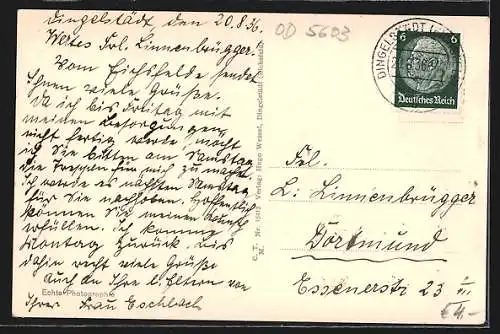 Dingelstädt den 20.8.36.
Wertes Frl. Linnenbrügger.
Vom Eichsfelde sendet
Ihnen viele Grüße.
Da ich bis Freitag mit
meinen Besorgungen
nicht fertig werde, möcht
ich Sie bitten am Samstag
die Treppen für mich zu machen.
Ich werde es nächsten Samstag
für Sie nachholen. Hoffentlich
können Sie meinen Wunsch
erfüllen. Ich komme
Montag zurück. Bis
dahin recht viele Grüße
auch an Ihre l. Eltern von
Ihrer Frau Eschbach
Echte Photographie
C. T. M. Nr. Verlag: Hugo Wessel, Dingelstädt (Eichsfeld)
OD 5603
DINGELSTÄDT
6 6
Deutsches Reich
Frl.
L. Linnenbrügger
Dortmund
Essenerstr 23 III
€ 4,-